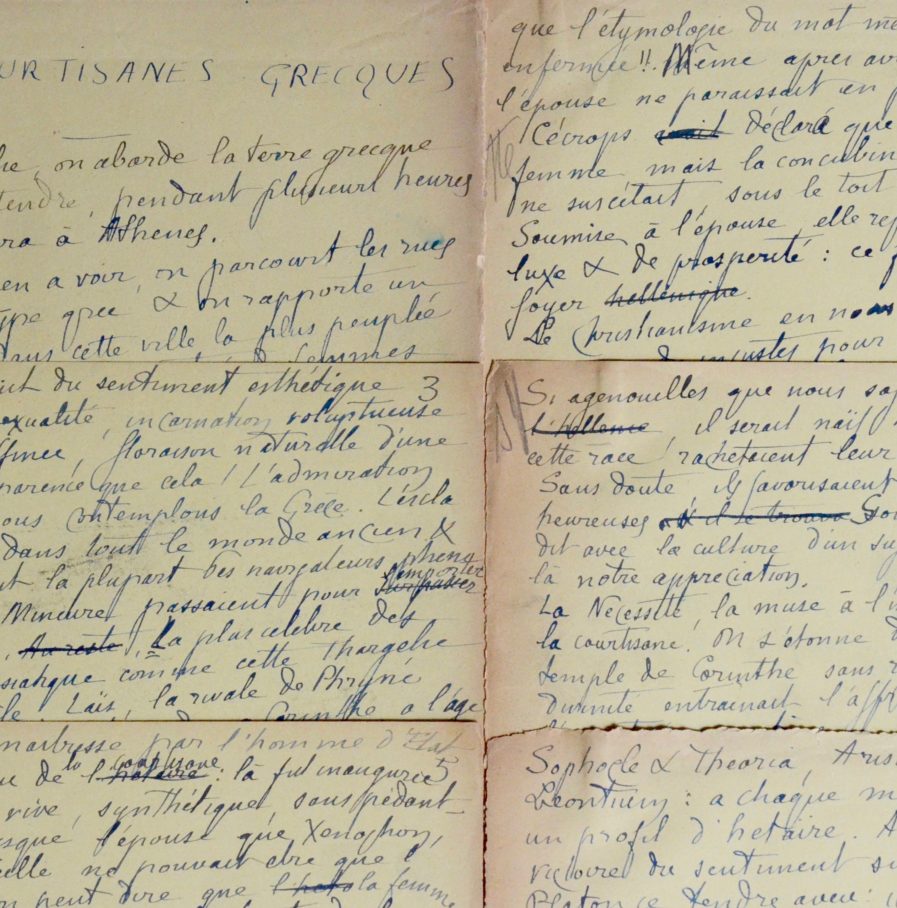 URTISANES GRECQUES
on aborde la terre grecque
tendre, pendant plusieurs heures
ra à Athenes.
en a voir, on parcourt les rues
type grec & on rapporte un
Dans cette ville la plus peuplée
femmes
que l'étymologie du mot me
enfermée!!. Même apres av
l'épouse ne paraissait en
Cécrops déclara que
femme, mais la concubin
ne suscitait, sous le toit
Soumise à l'épouse, elle re
luxe & de prosperité : ce
foyer hellénique.
Le Christianisme en
injustes pour
du sentiment esthétique 3
exualité, incarnation voluptueuse
ffinée, floraison naturelle d'une
parence que cela! L'admiration
ous contemplons la Grece. L'escla
dans tout le monde ancien &
t la plupart des navigateurs phenq
l'emporter
Mineure passaient pour surpasser
Au reste, La plus celebre des
siatique comme cette Thargelie
Laïs, la rivale de Phryné
Corinthe a l'âge
Si agenouilles que nous so
l'Hellenie, il serait naïf
cette race rachetaient leur
Sans doute, ils favorisaient
heureuses & il se trouva So
dit avec la culture d'un su
là notre appreciation.
La Necessité, la muse à l'
la courtisane. On s'etonne
temple de Corinthe sans
Divinité entrainait l'aff
maitresse par l'homme d'Etat
la courtisane 5
de l'hetaire : là fut inaugurée
vive, synthétique, sans pédant-
esque l'épouse que Xenophon,
elle ne pouvait etre que
peut dire que la femme
Sophocle & Theoria, Aris
Leontium : a chaque m
un profil d'hetaire. A
du sentiment
Platon ce tendre aveu :